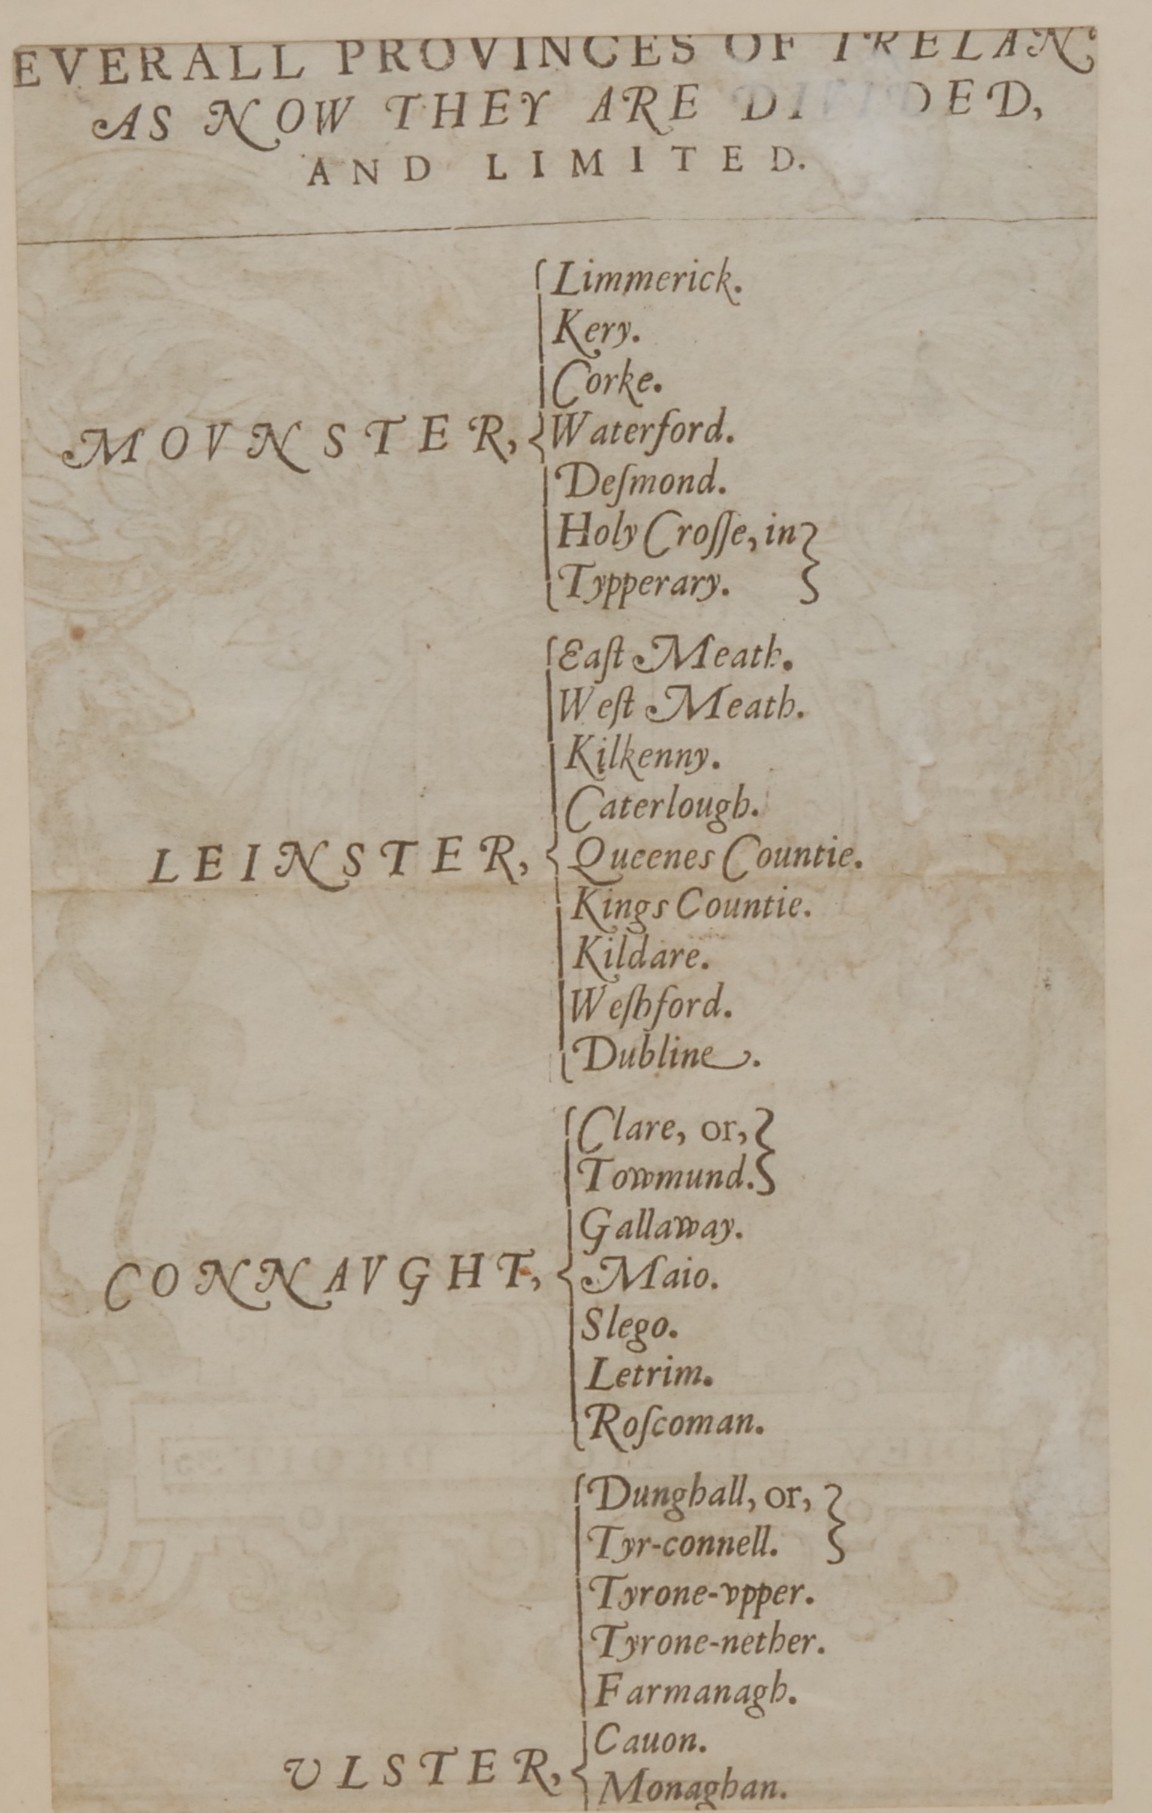 EVERALL PROVINCES OF IRELAN
AS NOW THEY ARE DIVIDED,
AND LIMITED.
MOVNSTER,
Limmerick.
Kery.
Corke.
Waterford.
Deſmond.
Holy Croſſe, in
Typperary.
LEINSTER,
Eaſt Meath.
Weſt Meath.
Kilkenny.
Caterlough.
Queenes Countie.
Kings Countie.
Kildare.
Weſhford.
Dubline.
CONNAVGHT,
Clare, or,
Towmund.
Gallaway.
Maio.
Slego.
Letrim.
Roſcoman.
ULSTER,
Dunghall, or,
Tyr-connell.
Tyrone-vpper.
Tyrone-nether.
Farmanagh.
Cauon.
Monaghan.